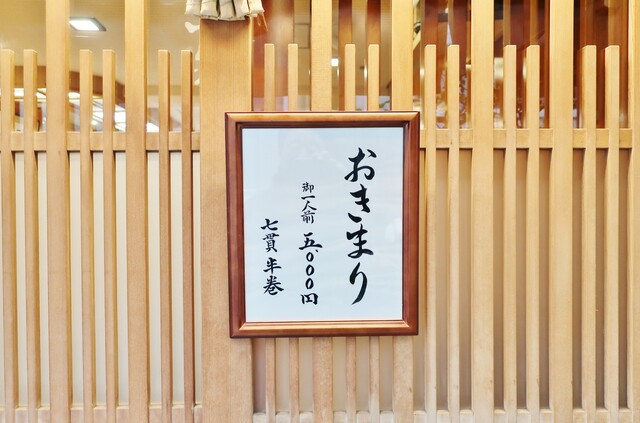 おきまり
御一人前 五、〇〇〇円
七貫 半巻